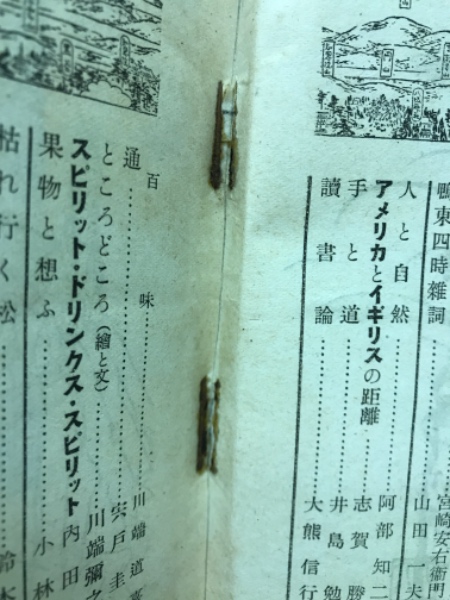 宮崎安右衛門
鴨東四時雜詞……山田一夫
人と自然……阿部知二
アメリカとイギリスの距離……志賀勝
手と道……井島勉
讀書論……大熊信行
百味……川端道喜
通……宍戸圭
ところどころ(繪と文)……川端彌之
スピリット・ドリンクス・スピリット 内田
果物と想ふ……小林
枯れ行く松……鈴木